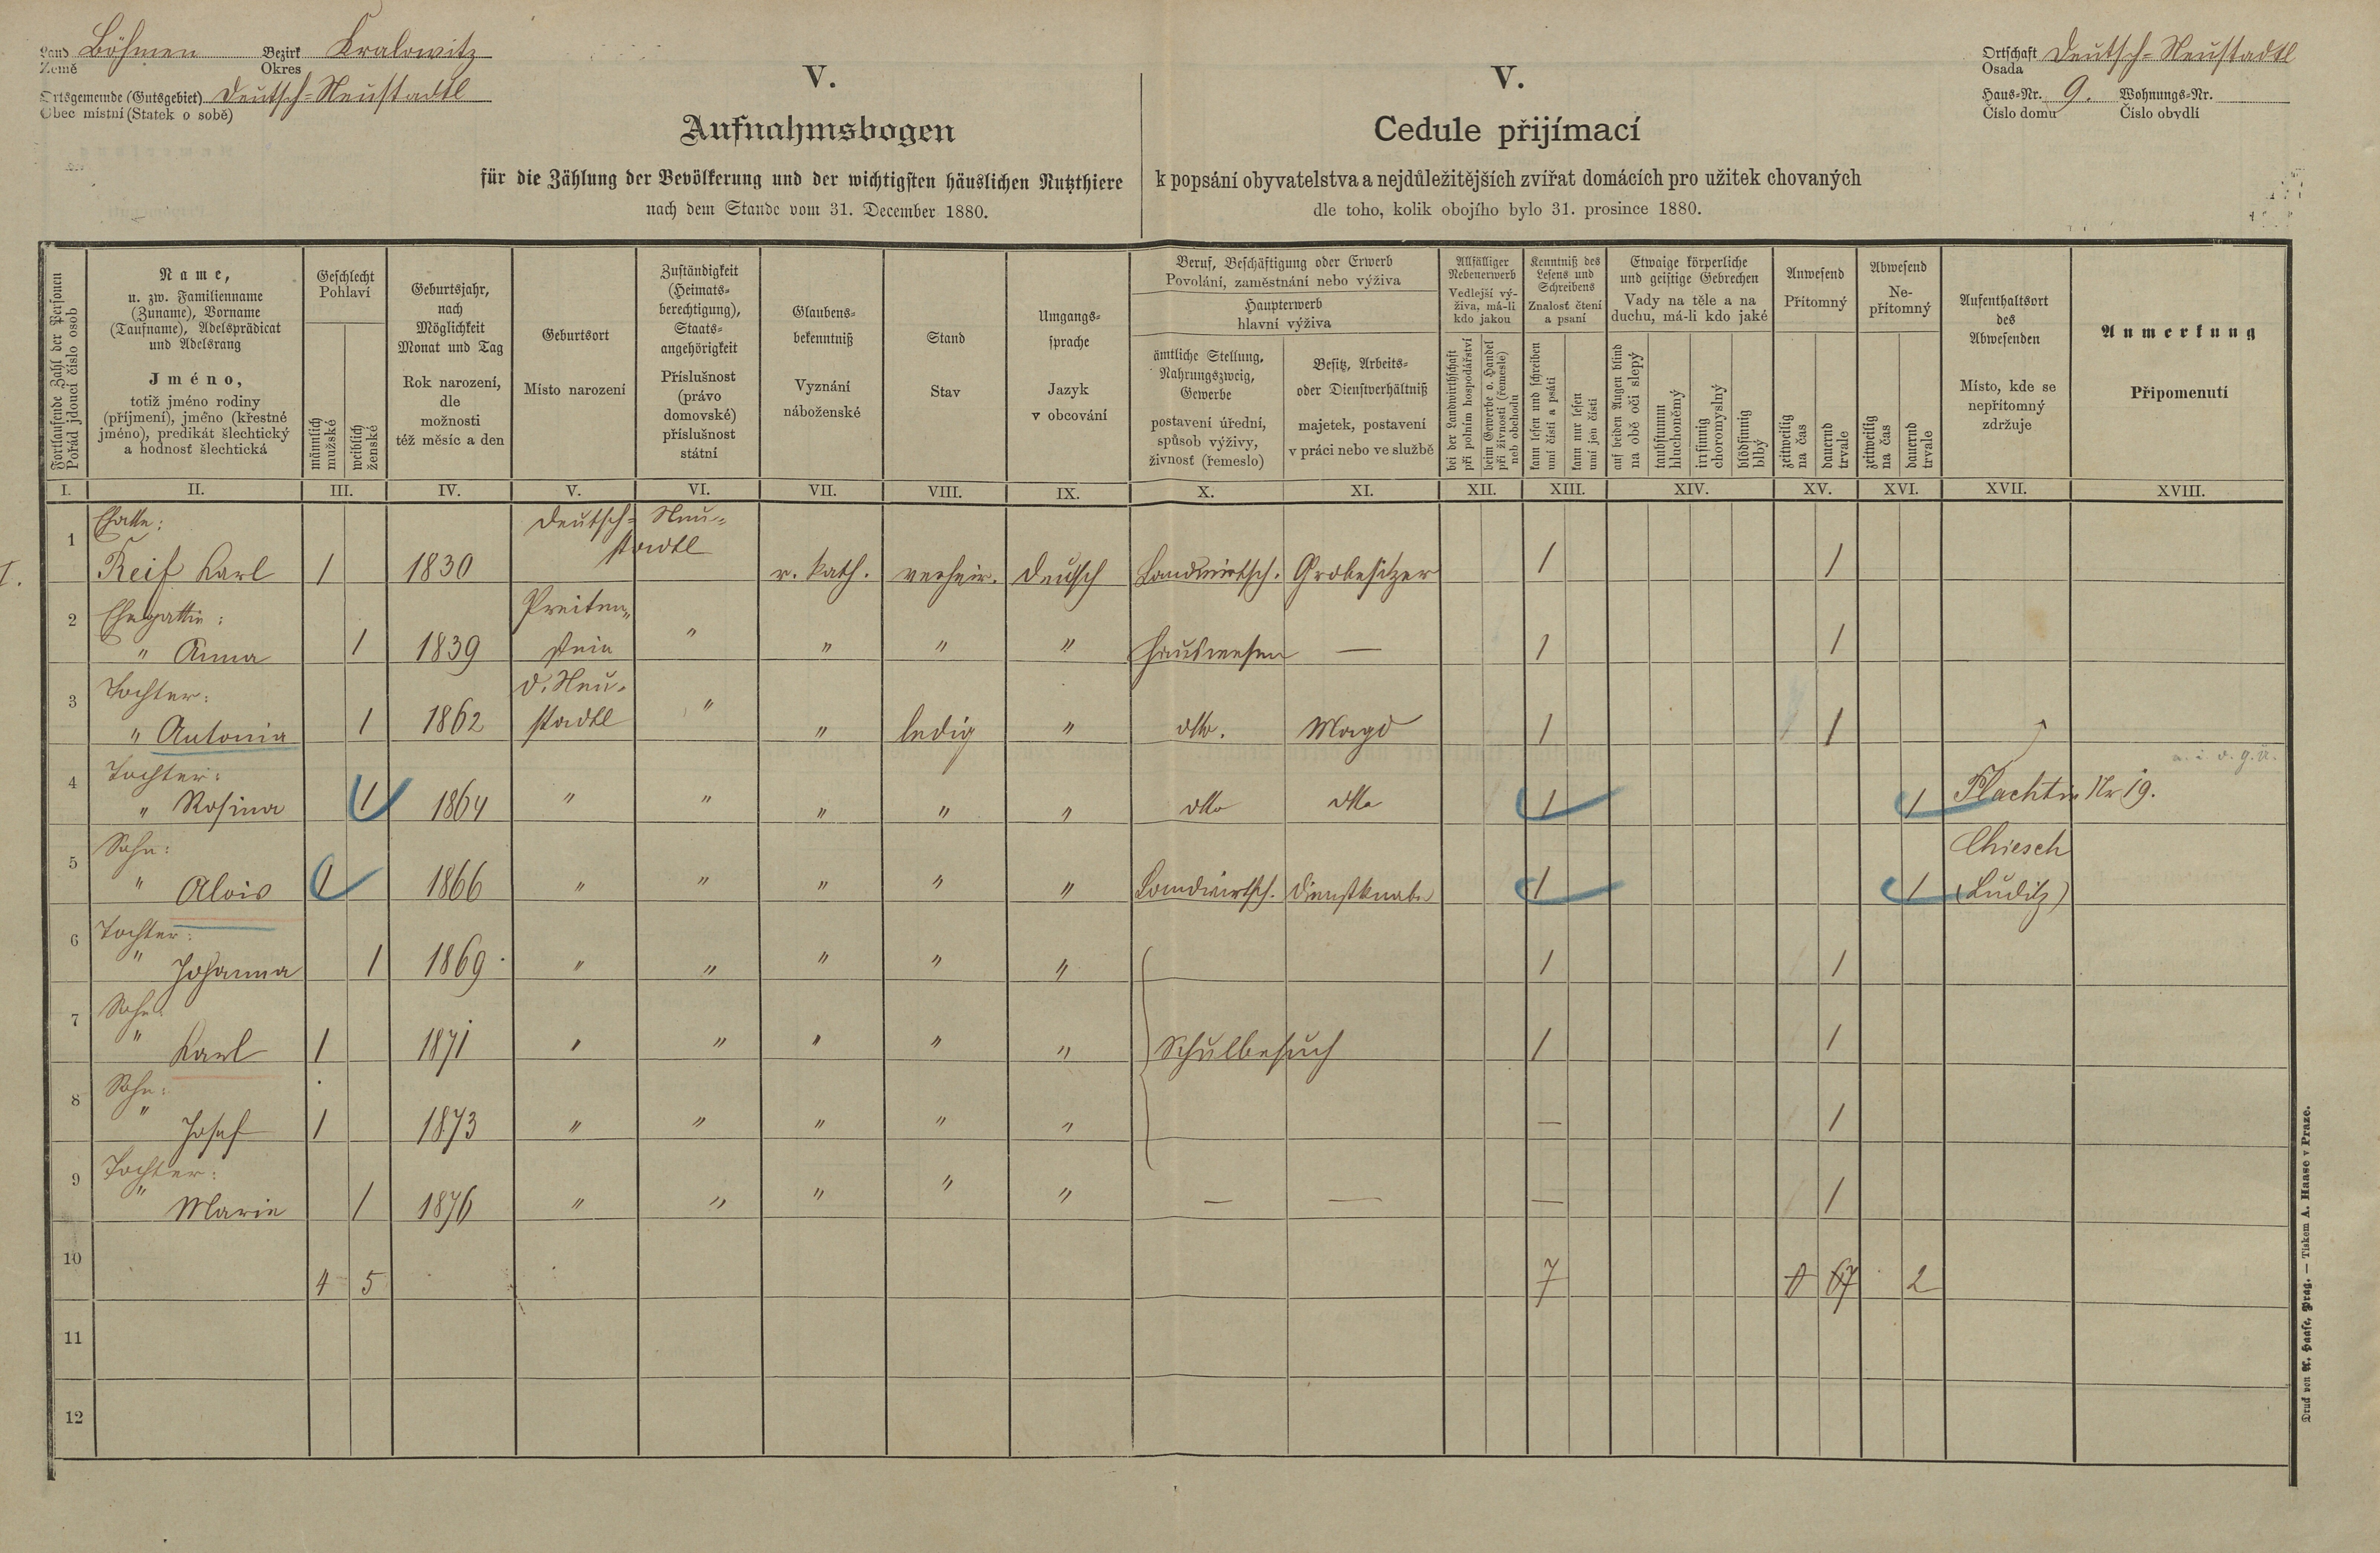 Land Böhmen Bezirk Kralowitz
Země Okres
Ortsgemeinde (Gutsgebiet) Deutsch-Neustadtl
Obec místní (Statek o sobě)
V.
Aufnahmsbogen
für die Zählung der Bevölkerung und der wichtigsten häuslichen Nutzthiere
nach dem Stande vom 31. December 1880.
V.
Cedule přijímací
k popsání obyvatelstva a nejdůležitějších zvířat domácích pro užitek chovaných
dle toho, kolik obojího bylo 31. prosince 1880.
Ortschaft Deutsch-Neustadtl
Osada
Haus-Nr. 9. Wohnungs-Nr.
Číslo domu Číslo obydlí
Fortlaufende Zahl der Personen
Pořád jdoucí číslo osob
Name,
u. zw. Familienname
(Zuname), Vorname
(Taufname), Adelsprädicat
und Adelsrang
Jméno,
totiž jméno rodiny
(příjmení), jméno (křestné
jméno), predikát šlechtický
a hodnosť šlechtická
Geschlecht
Pohlaví
männlich
mužské
weiblich
ženské
Geburtsjahr,
nach
Möglichkeit
Monat und Tag
Rok narození,
dle
možnosti
též měsíc a den
Geburtsort
Místo narození
Zuständigkeit
(Heimats-
berechtigung),
Staats-
angehörigkeit
Příslušnost
(právo
domovské)
příslušnost
státní
Glaubens-
bekenntniß
Vyznání
náboženské
Stand
Stav
Umgangs-
sprache
Jazyk
v obcování
Beruf, Beschäftigung oder Erwerb
Povolání, zaměstnání nebo výživa
Haupterwerb
hlavní výživa
ämtliche Stellung,
Nahrungszweig,
Gewerbe
postavení úřední,
spůsob výživy,
živnosť (řemeslo)
Besitz, Arbeits-
oder Dienstverhältniß
majetek, postavení
v práci nebo ve službě
Allfälliger
Nebenerwerb
Vedlejší vý-
živa, má-li
kdo jakou
bei der Landwirthschaft
při polním hospodářství
beim Gewerbe o. Handel
při živnosti (řemesle)
neb obchodu
Kenntniß des
Lesens und
Schreibens
Znalosť čtení
a psaní
kann lesen und schreiben
umí čísti a psáti
kann nur lesen
umí jen čísti
Etwaige körperliche
und geistige Gebrechen
Vady na těle a na
duchu, má-li kdo jaké
auf beiden Augen blind
na obě oči slepý
taubstumm
hluchoněmý
irrsinnig
choromyslný
blödsinnig
blbý
Anwesend
Přítomný
zeitweilig
na čas
dauernd
trvale
Abwesend
Ne-
přítomný
zeitweilig
na čas
dauernd
trvale
Aufenthaltsort
des
Abwesenden
Místo, kde se
nepřítomný
zdržuje
Anmerkung
Připomenutí
I. II. III. IV. V. VI. VII. VIII. IX. X. XI. XII. XIII. XIV. XV. XVI. XVII. XVIII.
Deutsch- Neu-
stadtl
I. 1 Reif Karl 1 1830 r. kath. verheir. deutsch Landwirtsch. Grdbesitzer 1 1
2 Ehegattin: Preiten-
" Anna 1 1839 stein " " " " Hauswesen — 1 1
3 Tochter: D. Neu-
" Antonia 1 1862 stadtl " " ledig " dtto. Magd 1 1
4 Tochter:
" Rosina 1 1864 " " " " " dtto dtto 1 1 Flachtin Nr 19.
5 Sohn: Chiesch
" Alois 1 1866 " " " " " Landwirtsch. Dienstknabe 1 1 (Luditz)
6 Tochter:
" Johanna 1 1869 " " " " " 1 1
7 Sohn:
" Karl 1 1871 " " " " " Schulbesuch 1 1
8 Sohn:
" Josef 1 1873 " " " " " — 1
9 Tochter:
" Marie 1 1876 " " " " " — — — 1
10 4 5 7 7 2
11
12
Druck von A. Haase, Prag. — Tiskem A. Haase v Praze.